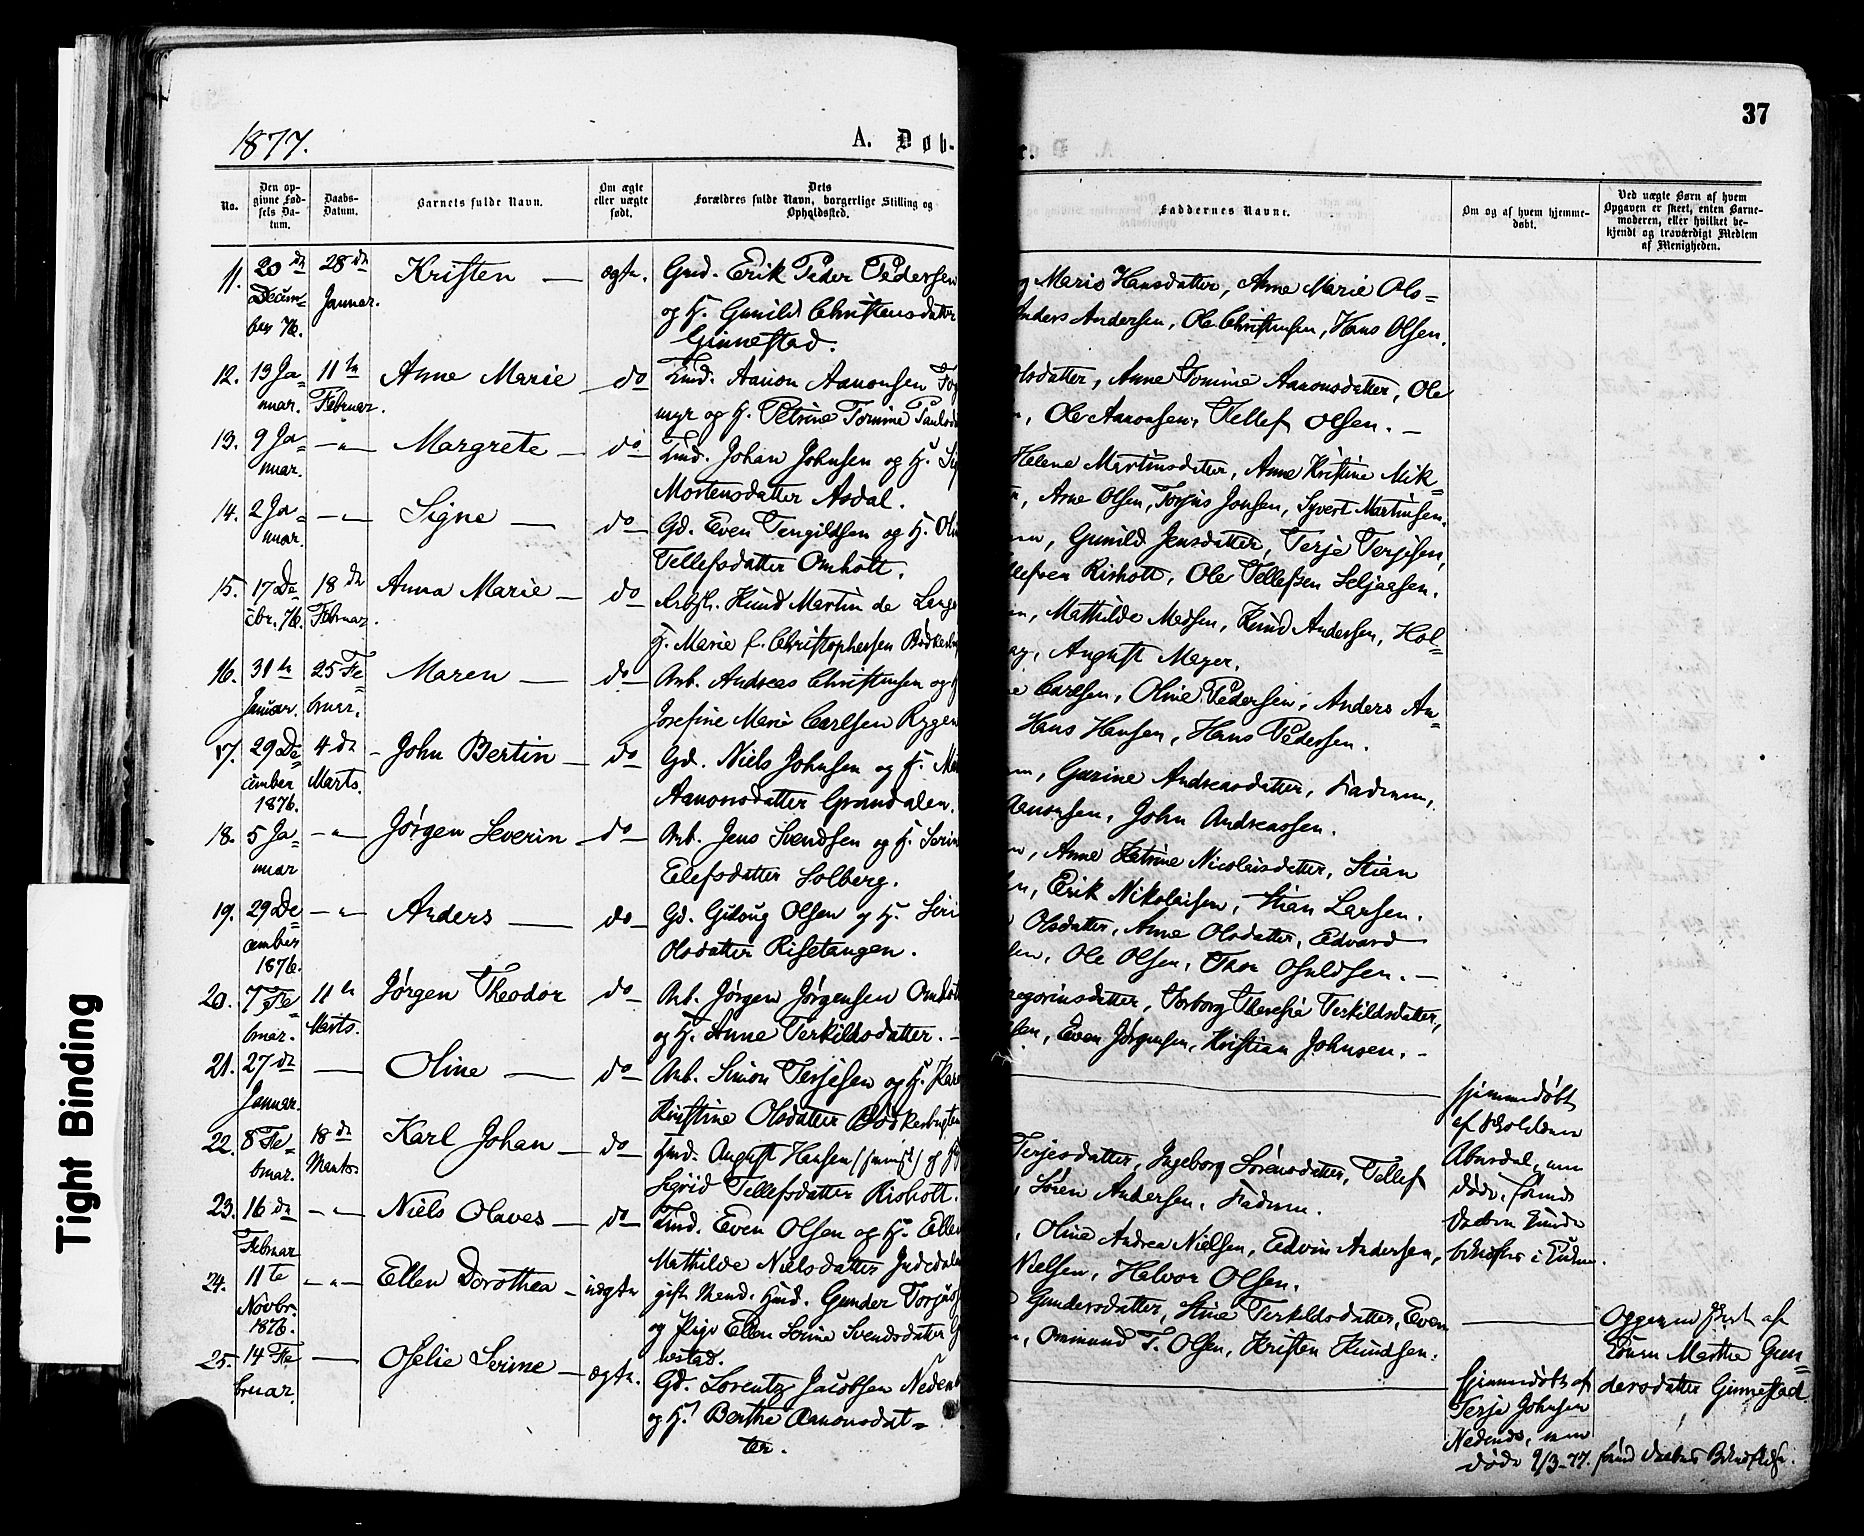 37
1877.
A. Døb-
r.
No.
Den op-
givne Fød-
sels Da-
tum.
Daabs-
Datum.
Barnets fulde Navn.
Om ægte
eller uægte
født.
Dets
Forældres fulde Navn, borgerlige Stilling og
Opholdssted.
Faddernes Navne.
Om og af hvem hjemme-
døbt.
Ved uægte Børn af hvem
Opgaven er skeet, enten Barne-
moderen, eller hvilket be-
kjendt og troværdigt Medlem
af Menigheden.
11. 20 de Decem- ber 76. 28 de Januar. Kristen — ægte.
Gmd. Erik Peder Pedersen
og H. Gunild Christensdatter
Ginnestad.
g Marie Hansdatter, Anne Marie Ols=
Anders Andersen, Ole Christensen, Hans Olsen.
12. 19 Ja= nuar. 11 te Februar. Anne Marie do
Aanon Aanonsen
myr og H. Petrine Tomine Pauls
lsdatter, Anne Tomine Aanonsdatter, Ole
, Ole Aanonsen, Tellef Olsen. —
13. 9 Ja= nuar. — " — Margrete — do
Johan Johnsen og H.
Mortensdatter Asdal.
Helene Martinsdatter, Anne Kristine Mik=
, Arne Olsen, Torjus Jonsen, Syvert Martinsen.
14. 2 Ja= nuar. — " — Signe — do
Gd. Even Tengildsen og H. Oli
Tellefsdatter Omholt.
, Gunild Jensdatter, Terje Terjesen,
llefsen Risholt, Ole Tellefsen Seljaasen.
15. 17 De= cbr. 76. 18 de Februar. Anna Marie — do
Knud Martin de Lange
H. Marie f. Christophersen
, Mathilde Madsen, Knud Andersen, Hol=
, August Meyer.
16. 31 te Januar. 25 Fe= bruar. Maren — do
Arb. Andreas Christensen og H
Josefine Marie Carlsen Rygen
Carlsen, Oline Pedersen, Anders An=
Hans Hansen, Hans Pedersen.
17. 29 De= cember 1876. 4 de Marts. John Bertin — do
Gd. Niels Johnsen og H.
Aanonsdatter Grandalen.
, Gurine Andreasdatter, Faderen,
Aanonsen, John Andreassen.
18. 5 Ja= nuar — " — Jørgen Severin — do
Arb. Jens Svendsen og H. Serin
Eilefsdatter Solberg.
, Anne Katrine Nicolaisdatter, Stian
, Erik Nikolaisen, Stian Larsen.
19. 29 De= cember 1876. — " — Anders — do
Gd. Gitoug Olsen og H. Siri
Olsdatter Risetangen.
Olsdatter, Anne Olsdatter, Edvard
, Ole Olsen, Thor Osuldsen. —
20. 7 Fe= bruar. 11 te Marts. Jørgen Theodor do
Arb. Jørgen Jørgensen
og H. Anne Terkildsdatter. —
regoriusdatter, Torborg Theresia Terkildsdatter,
sen, Even Jørgensen, Kristian Johnsen. —
21. 27 de Januar. — Oline — do
Arb. Simon Terjesen og H. Kare
Kirstine Olsdatter
Hjemmedøbt
af
døde, førend
Daaben kunde
bekræftes i
22. 8 Fe= bruar. 18 de Marts. Karl Johan — do
August Hansen og H
Sigrid Tellefsdatter Risholt.
Terjesdatter, Ingeborg Sørensdatter, Tellef
, Søren Andersen, Faderen.
23. 16 de Februar — " — Niels Olaves — do
Even Olsen og H. Ellen
Mathilde Nielsdatter
, Oline Andrea Nielsen, Edvin Andersen,
Nielsen, Helvor Olsen.
24. 11 te Novbr. 1876. — " — Ellen Dorothea — uægte
gift Mand. Gunder
og Pige Ellen Serine Svendsdatter
nestad.
Gundersdatter, Stine Terkildsdatter, Even
, Ommund T. Olsen, Kristen Knudsen.
Opgaven skeet af
Marthe Gun=
dersdatter Ginnestad.
25. 14 Fe bruar — Oselie Serine — ægte.
Gd. Lorentz Jacobsen Neden
og H. Berthe Aanonsdat=
ter.
Hjemmedøbt af
Terje Johnsen
Nedenes, men
døde 9/3-77. førend Daabens Bekræftelse.
Tight Binding